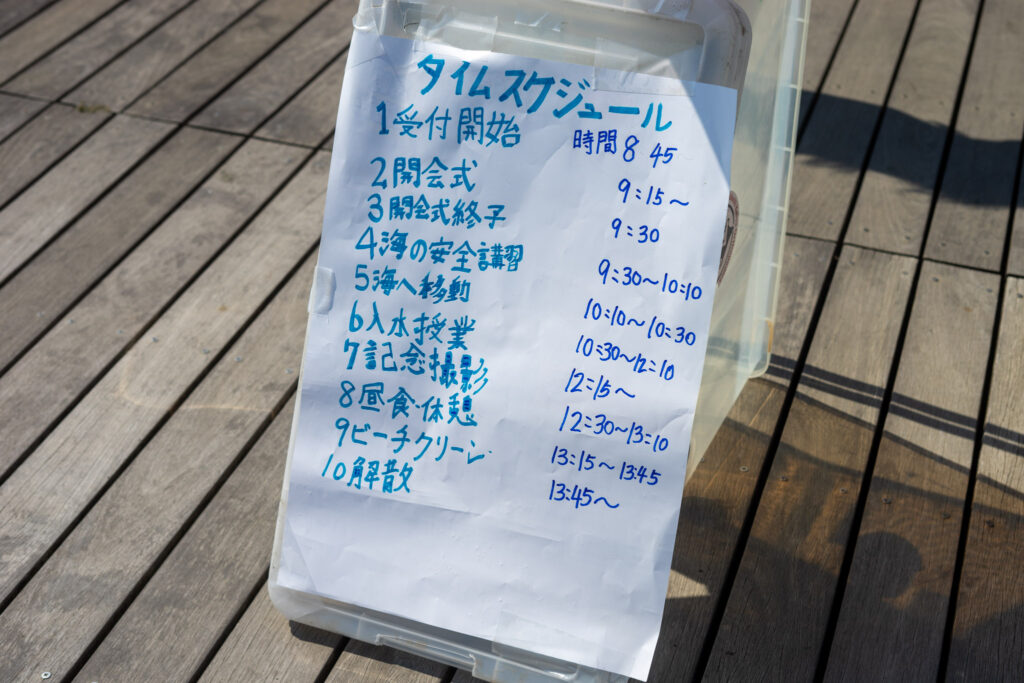 タイムスケジュール
1受付開始 時間 8 45
2開会式 9:15～
3開会式終了 9:30
4海の安全講習 9:30～10:10
5海へ移動 10:10～10:30
6入水授業 10:30～12:10
7記念撮影 12:15～
8昼食・休憩 12:30～13:10
9ビーチクリーン 13:15～13:45
10解散 13:45～